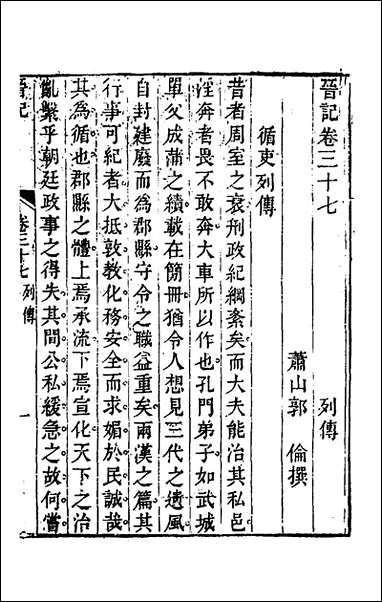 晉記卷三十七
列傳
蕭山郭 倫撰
循吏列傳
昔者周室之衰刑政紀綱紊矣而大夫能治其私邑
淫奔者畏不敢奔大車所以作也孔門弟子如武城
單父成蒲之績載在簡冊猶令人想見三代之遺風
自封建廢而為郡縣守令之職益重矣兩漢之篇其
行事可紀者大抵敦教化務安全而求媚於民誠哉
其為循也郡縣之體上焉承流下焉宣化天下之治
亂繫乎朝廷政事之得失其間公私緩急之故何嘗
晉記
卷三十七列傳
一